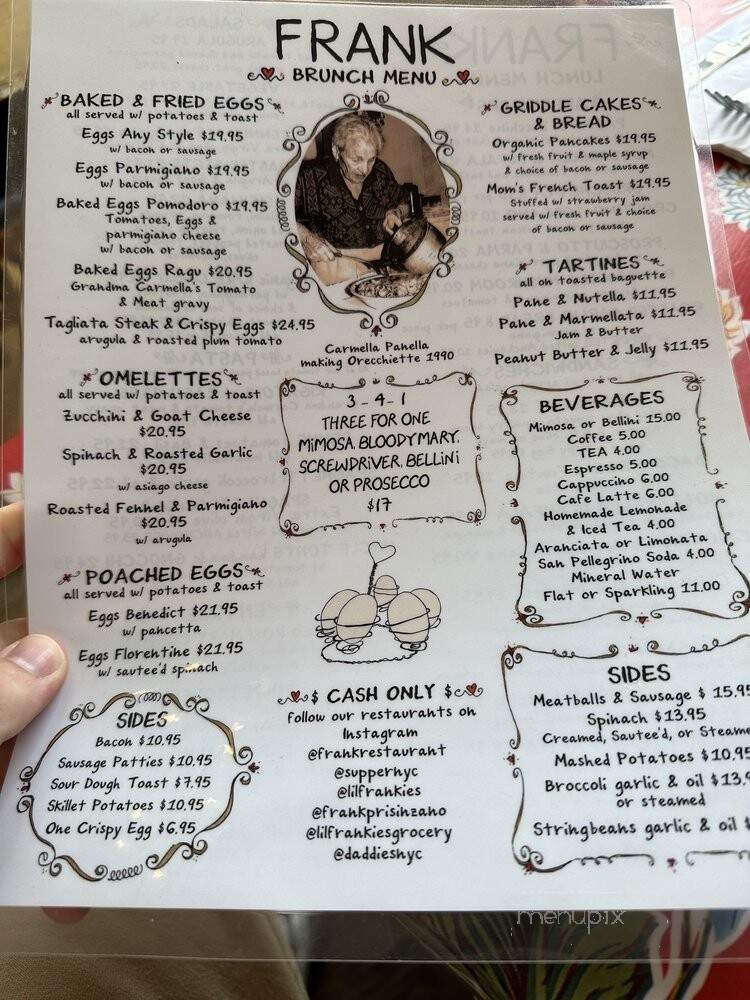 FRANK
BRUNCH MENU
BAKED & FRIED EGGS
all served w/ potatoes & toast
Eggs Any Style $19.95
w/ bacon or sausage
Eggs Parmigiano $19.95
w/ bacon or sausage
Baked Eggs Pomodoro $19.95
Tomatoes, Eggs &
parmigiano cheese
w/ bacon or sausage
Baked Eggs Ragu $20.95
Grandma Carmella's Tomato
& Meat gravy
Tagliata Steak & Crispy Eggs $24.95
arugula & roasted plum tomato
OMELETTES
all served w/ potatoes & toast
Zucchini & Goat Cheese
$20.95
Spinach & Roasted Garlic
$20.95
w/ asiago cheese
Roasted Fennel & Parmigiano
$20.95
w/ arugula
POACHED EGGS
all served w/ potatoes & toast
Eggs Benedict $21.95
w/ pancetta
Eggs Florentine $21.95
w/ sautee'd spinach
SIDES
Bacon $10.95
Sausage Patties $10.95
Sour Dough Toast $7.95
Skillet Potatoes $10.95
One Crispy Egg $6.95
Carmella Panella
making Orecchiette 1990
3 - 4 - 1
THREE FOR ONE
MIMOSA, BLOODYMARY,
SCREWDRIVER, BELLINI
OR PROSECCO
$17
$ CASH ONLY $
follow our restaurants on
Instagram
@frankrestaurant
@suppernyc
@lilfrankies
@frankprisinzano
@lilfrankiesgrocery
@daddiesnyc
GRIDDLE CAKES
& BREAD
Organic Pancakes $19.95
w/ fresh fruit & maple syrup
& choice of bacon or sausage
Mom's French Toast $19.95
Stuffed w/ strawberry jam
served w/ fresh fruit & choice
of bacon or sausage
TARTINES
all on toasted baguette
Pane & Nutella $11.95
Pane & Marmellata $11.95
Jam & Butter
Peanut Butter & Jelly $11.95
BEVERAGES
Mimosa or Bellini 15.00
Coffee 5.00
TEA 4.00
Espresso 5.00
Cappuccino 6.00
Cafe Latte 6.00
Homemade Lemonade
& Iced Tea 4.00
Aranciata or Limonata
San Pellegrino Soda 4.00
Mineral Water
Flat or Sparkling 11.00
SIDES
Meatballs & Sausage $ 15.95
Spinach $13.95
Creamed, Sautee'd, or Steame
Mashed Potatoes $10.95
Broccoli garlic & oil $13.9
or steamed
Stringbeans garlic & oil $
menupix